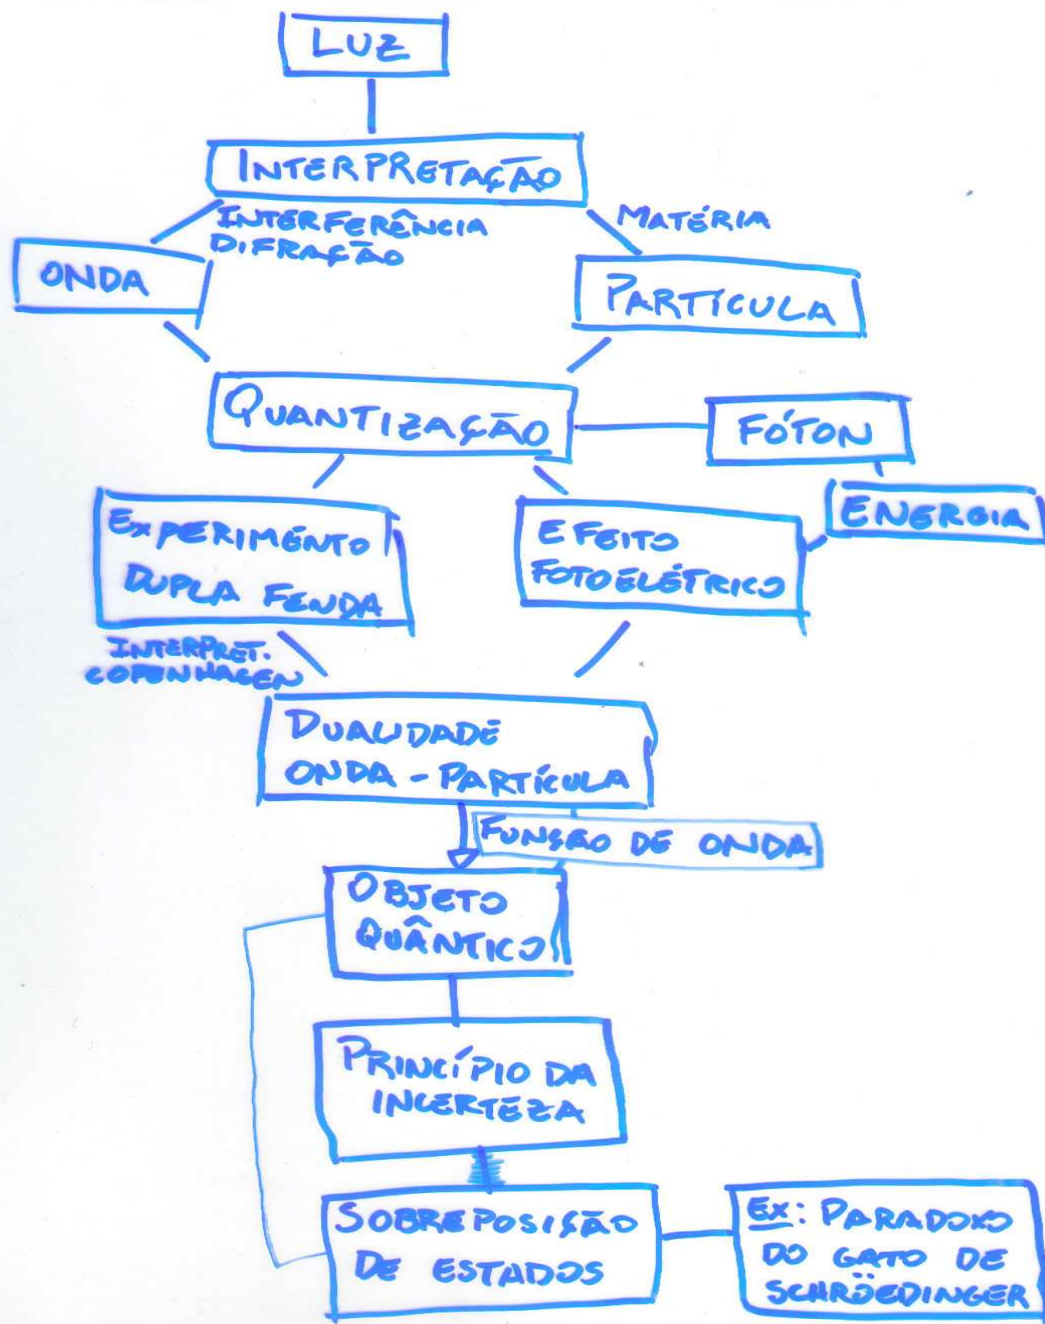 LUZ
INTERPRETAÇÃO
INTERFERÊNCIA
DIFRAÇÃO
MATÉRIA
ONDA
PARTÍCULA
QUANTIZAÇÃO
FÓTON
ENERGIA
EXPERIMENTO
DUPLA FENDA
EFEITO
FOTOELÉTRICO
INTERPRET.
COPENHAGEN
DUALIDADE
ONDA - PARTÍCULA
FUNÇÃO DE ONDA
OBJETO
QUÂNTICO
PRINCÍPIO DA
INCERTEZA
SOBREPOSIÇÃO
DE ESTADOS
EX: PARADOXO
DO GATO DE
SCHRÖEDINGER